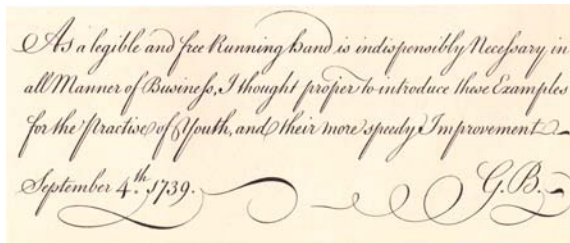 As a legible and free Running hand is indispensibly Necessary in
all Manner of Business, I thought proper to introduce these Examples
for the Practise of Youth, and their more speedy Improvement
September 4.th 1739. G. B.